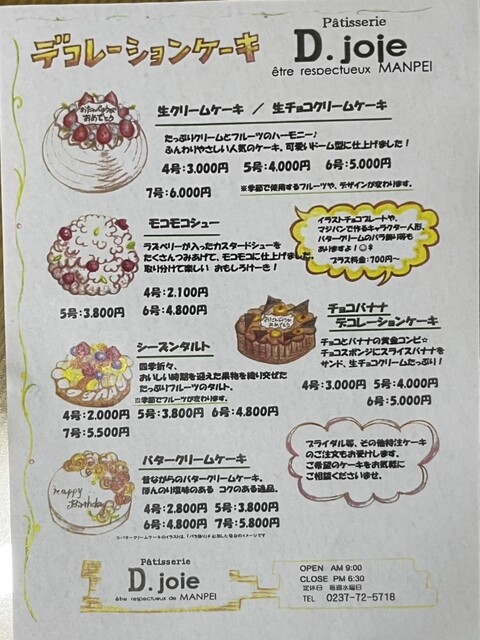 デコレーションケーキ
Pâtisserie
D. joie
être respectueux MANPEI
おたんじょうび
おめでとう
生クリームケーキ / 生チョコクリームケーキ
たっぷりクリームとフルーツのハーモニー♪
ふんわりやさしい人気のケーキ。可愛いドーム型に仕上げました!
4号:3.000円 5号:4.000円 6号:5.000円
7号:6.000円
※季節で使用するフルーツや、デザインが変わります。
モコモコシュー
ラズベリーが入ったカスタードシューを
たくさんつみあげて、モコモコに仕上げました。
取り分けて楽しい おもしろけーき!
4号:2.100円
5号:3.800円 6号:4.800円
イラストチョコプレートや、
マジパンで作るキャラクター人形、
バタークリームのバラ飾り等も
ありますよ!
プラス料金:700円〜
シーズンタルト
四季折々、
おいしい時期を迎えた果物を織り交ぜた
たっぷりフルーツのタルト。
※季節でフルーツが変わります。
4号:2.000円 5号:3.800円 6号:4.800円
7号:5.500円
おめでとう
チョコバナナ
デコレーションケーキ
チョコとバナナの黄金コンビ☆
チョコスポンジにスライスバナナを
サンド、生チョコクリームたっぷり!
4号:3.000円 5号:4.000円
6号:5.000円
バタークリームケーキ
昔ながらのバタークリームケーキ。
ほんのり塩味のある コクのある逸品。
4号:2.800円 5号:3.800円
6号:4.800円 7号:5.800円
※バタークリームケーキのイラストは、「バラ飾り」を追加した場合のイメージです
Happy
Birthday
ブライダル等、その他特注ケーキ
のご注文もお受けします。
ご希望のケーキをお気軽に
ご相談くださいませ。
Pâtisserie
D. joie
être respectueux de MANPEI
OPEN AM 9:00
CLOSE PM 6:30
定休日 毎週水曜日
TEL 0237-72-5718